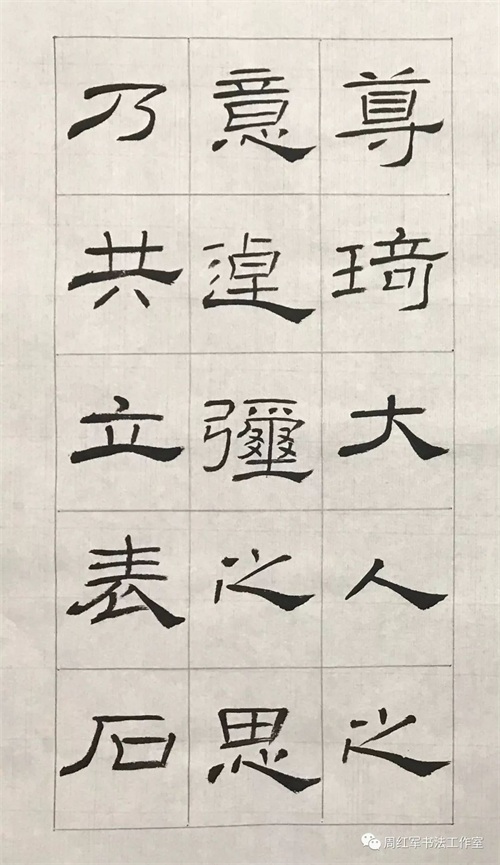 尊琦大人之
意逴彌之思
乃共立表石
周红军书法工作室